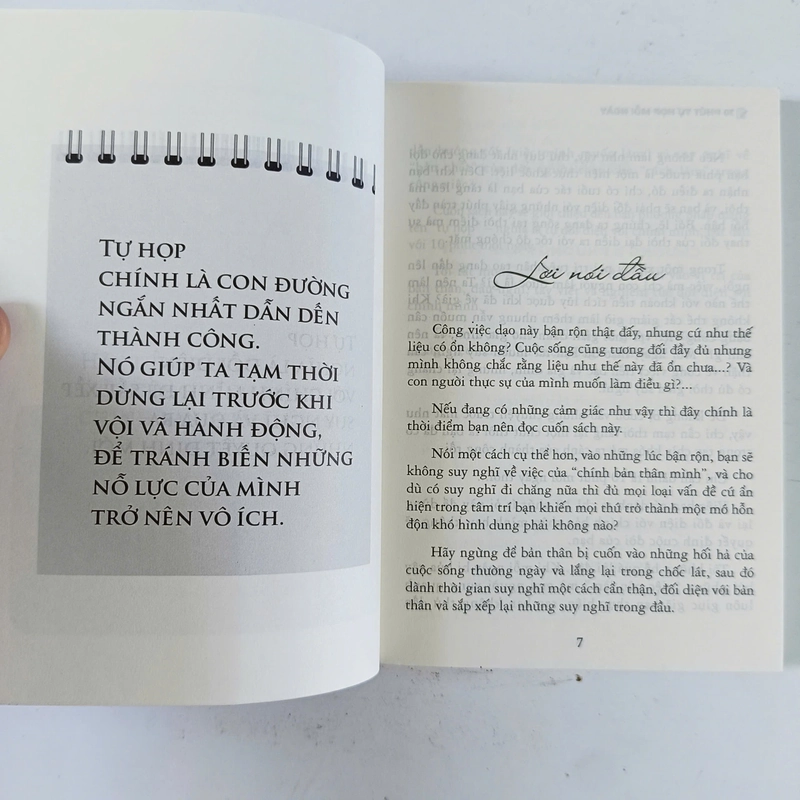 TỰ HỌP
CHÍNH LÀ CON ĐƯỜNG
NGẮN NHẤT DẪN DẾN
THÀNH CÔNG.
NÓ GIÚP TA TẠM THỜI
DỪNG LẠI TRƯỚC KHI
VỘI VÃ HÀNH ĐỘNG,
ĐỂ TRÁNH BIẾN NHỮNG
NỖ LỰC CỦA MÌNH
TRỞ NÊN VÔ ÍCH.
Lời nói đầu
Công việc dạo này bận rộn thật đấy, nhưng cứ như thế
liệu có ổn không? Cuộc sống cũng tương đối đầy đủ nhưng
mình không chắc rằng liệu như thế này đã ổn chưa...? Và
con người thực sự của mình muốn làm điều gì?...
Nếu đang có những cảm giác như vậy thì đây chính là
thời điểm bạn nên đọc cuốn sách này.
Nói một cách cụ thể hơn, vào những lúc bận rộn, bạn sẽ
không suy nghĩ về việc của “chính bản thân mình”, và cho
dù có suy nghĩ đi chăng nữa thì đủ mọi loại vấn đề cứ ẩn
hiện trong tâm trí bạn khiến mọi thứ trở thành một mớ hỗn
độn khó hình dung phải không nào?
Hãy ngừng để bản thân bị cuốn vào những hối hả của
cuộc sống thường ngày và lắng lại trong chốc lát, sau đó
dành thời gian suy nghĩ một cách cẩn thận, đối diện với bản
thân và sắp xếp lại những suy nghĩ trong đầu.
7